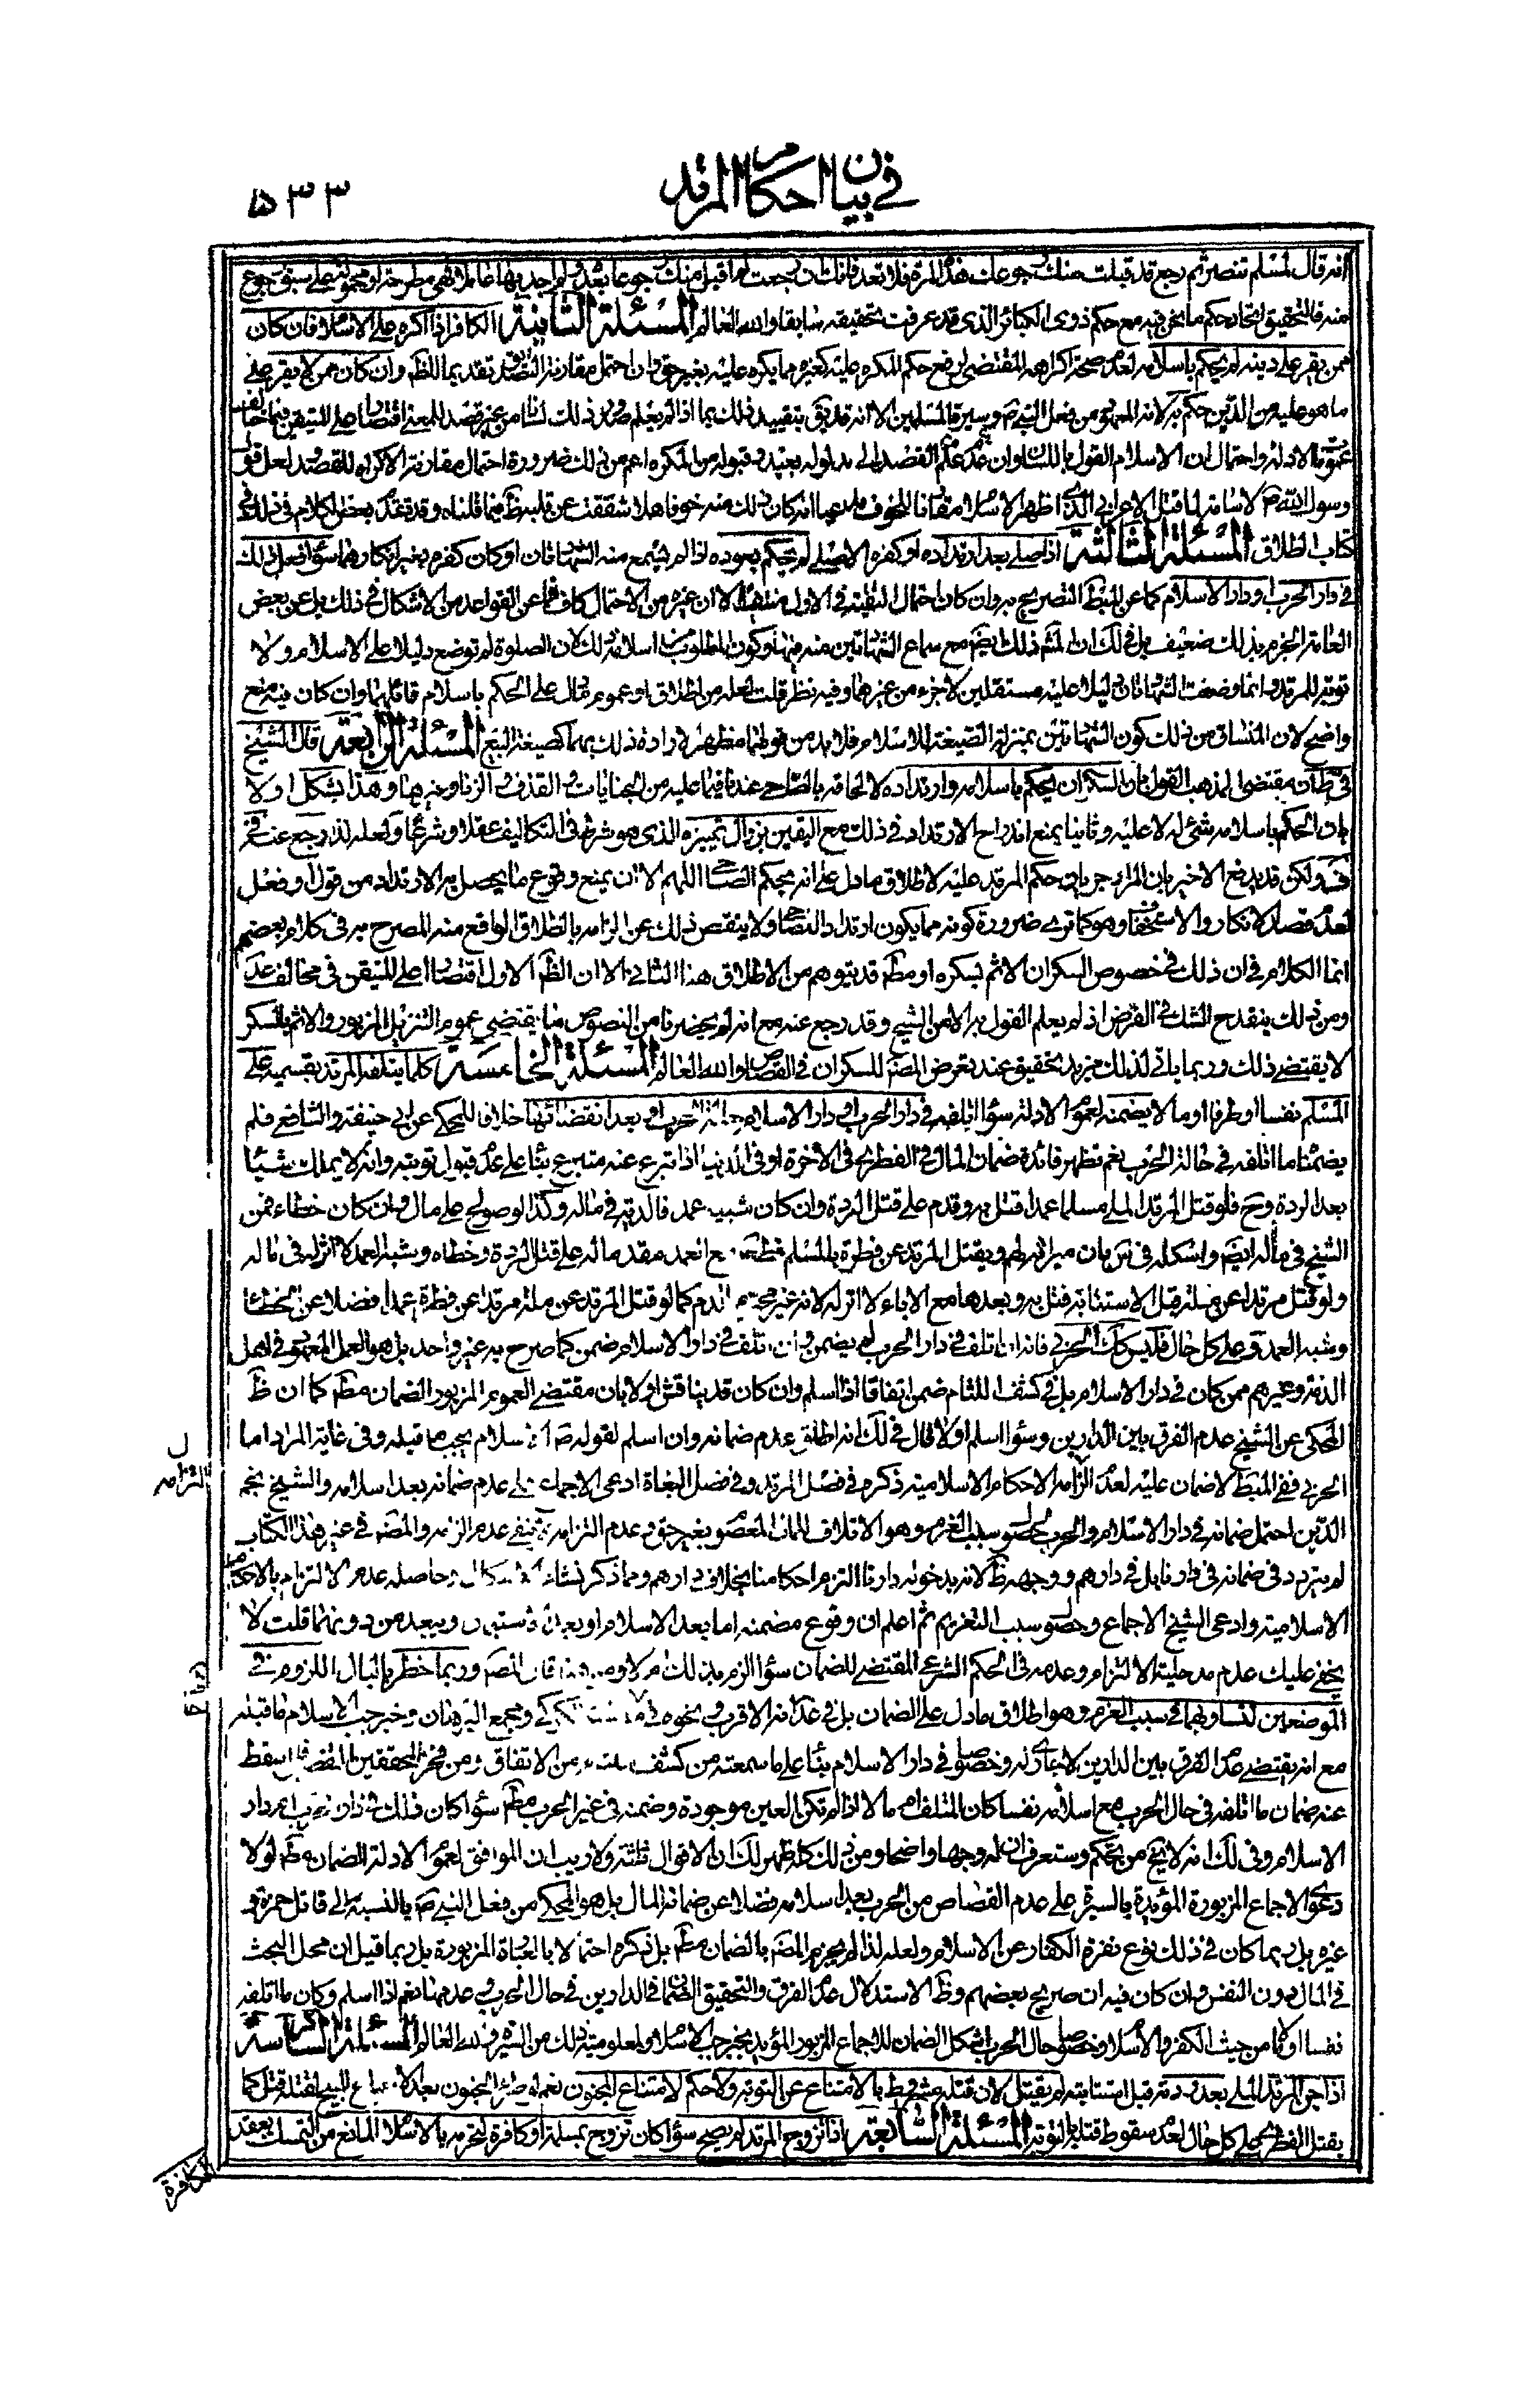 في بيان احكام المرتد
٥٣٣
انه قال لمسلم تنصر ثم رجع قد قبلت منك رجوعك هذه المرة فلا تعد فانك ان رجعت لم اقبل منك رجوعا بعده لم اجد بها عاملا فهي مطرحة او محمولة على سبق رجوع
منه فالتحقيق اتحاد حكم ما نحن فيه مع حكم ذوى الكبائر الذى قد عرفت تحقيقه سابقا والله العالم المسئلة الثانية الكافر اذا اكره على الاسلام فان كان
ممن يقر على دينه لم يحكم باسلامه لعدم صحة اكراهه المقتضى لرفع حكم المكره عليه كغيره مما يكره عليه بغير حق وان احتمل مقارنة التصديق تقديما للظم وان كان ممن لا يقر على
ما هو عليه من الدين حكم به لانه المعهود من فعل النبي ص وسيرة المسلمين الا انه قد يق بتقييد ذلك بما اذا لم يعلم صدور ذلك لسانا من غير قصد للمعنى اقتصارا على المتيقن فيما خالف
عموم الادلة واحتمال ان الاسلام القول باللسان وان علم عدم القصد الى مدلوله بعيد وقبوله من المكره اعم من ذلك ضرورة احتمال مقارنة الاكراه للقصد ولعل قول
رسول الله ص لاسامة لما قتل الاعرابي الذى اظهر الاسلام مقارنا للخوف مدعيا انه كان ذلك منه خوفا هلا شققت عن قلبه ظ فيما قلناه وقد تقدم بعض الكلام في ذلك في
كتاب الطلاق المسئلة الثالثة اذا صلى بعد ارتداده او كفره الاصلي لم يحكم بعوده اذا لم يسمع منه الشهادتان او كان كفره بغير انكارهما سواء فعل ذلك
في دار الحرب او دار الاسلام كما عن المبسط التصريح به وان كان احتمال التقية في الاول منتفيا الا ان غيره من الاحتمال كاف فما عن القواعد من الاشكال في ذلك بل عن بعض
العامة الجزم بذلك ضعيف بل في لك ان لم ثم ذلك ايضا مع سماع الشهادتين منه فيها وكون المطلوب منه اسلامه بذلك لان الصلوة لم توضع دليلا على الاسلام ولا
توبة للمرتد وانما وضعت الشهادتان دليلا عليه مستقلين لا جزء من غيرهما وفيه نظر قلت لعله من اطلاق او عموم دال على الحكم باسلام قائلهما وان كان فيه منع
واضح لان المنساق من ذلك كون الشهادتين بمنزلة الصيغة للاسلام فلا بد من قولهما مظهرا لارادة ذلك بهما كصيغة البيع المسئلة الرابعة قال الشيخ
في ط ان مقتضى المذهب القول بان السكران يحكم باسلامه وارتداده لالحاقه بالصاحي عندنا فيما عليه من الجنايات والقذف والزنا وغيرها وهذا يشكل اولا
بان الحكم باسلامه شئ له لا عليه وثانيا بمنع اندراج الارتداد في ذلك مع اليقين بزوال تمييزه الذى هو شرط في التكاليف عقلا وشرعا ولعله لذا رجع عنه في
ف ولكن قد يدفع الاخير بان المراد جريان حكم المرتد عليه لاطلاق ما دل على انه بحكم الصاحي اللهم الا ان يمنع وقوع ما يحصل به الارتداد من قول او فعل
لعدم قصد الانكار والاستخفاف وهو كما ترى ضرورة كونه مما يكون ارتداد الصاحي ولا ينقص ذلك عن الزامه بالطلاق الواقع منه المصرح به في كلام بعضهم
انما الكلام في ان ذلك في خصوص السكران الاثم بسكره او مط قد يتوهم من الاطلاق هذا الثاني الا ان الظ الاول اقتصارا على المتيقن في مخالفة
ومن ذلك ينقدح الشك في الفرض اذ لم يعلم القول به الا من الشيخ وقد رجع عنه مع انه لم يحضرنا من النصوص ما يقتضى عموم التنزيل المزبور والاثم بالسكر
لا يقتضى ذلك وربما ياتي لذلك مزيد تحقيق عند تعرض المصنف للسكران في القصاص والله العالم المسئلة الخامسة كلما يتلفه المرتد يضمنه على
المسلم نفسا او طرفا او مالا يضمنه لعموم الادلة سواء اتلفه في دار الحرب او دار الاسلام حالة الحرب او بعد انقضائها خلافا للمحكي عن ابي حنيفة والشافعي فلم
يضمنا ما اتلفه في حالة الحرب نعم تظهر فائدة ضمان المال في الفطري في الاخرة او في الدنيا اذا تبرع عنه متبرع بناء على عدم قبول توبته وانه لا يملك شيئا
بعد الردة وح فلو قتل المرتد الملي مسلما عمدا قتل به وقدم على قتل الردة وان كان شبيه عمد فالدية في ماله وكذا لو صولح على مال وان كان خطاء فمن
الشيخ في ماله ايضا واشكله في س بان ميراثه لهم ويقتل المرتد عن فطرة بالمسلم قطعا مع العمد مقدما له على قتل الردة وخطاه وشبه العمد لا اثر له في ماله
ولو قتل مرتدا عن ملة قبل الاستتابة قتل به وبعدها مع الاباء لا اثر له لانه غير محترم الدم كما لو قتل المرتد عن ملة مرتدا عن فطرة عمدا فضلا عن الخطاء
وشبه العمد وعلى كل حال فليس كك الحربي فانه ان اتلف في دار الحرب لم يضمن وان اتلف في دار الاسلام ضمن كما صرح به غير واحد بل هو العمل المعهود في اهل
الذمة وغيرهم ممن كان في دار الاسلام بل في كشف اللثام ضمن اتفاقا اذا اسلم وان كان قد يناقش اولا بان مقتضى العموم المزبور الضمان مط كما ان ظ
المحكي عن الشيخ عدم الفرق بين الدارين وسواء اسلم او لا قال في لك انه اطلق عدم ضمانه وان اسلم لقوله ص الاسلام يجب ما قبله وفي غاية المراد اما
الحربي ففي المبسط لا ضمان عليه لعدم التزامه الاحكام الاسلامية ذكره في فصل المرتد وفي فصل البغاة ادعى الاجماع على عدم ضمانه بعد اسلامه والشيخ نجم
الدين احتمل ضمانه في دار الاسلام والحرب لحصول سبب الغرم وهو الاتلاف للمال المعصوم بغير حق وعدم التزامه لا ينفي عدم الزامه والمصنف في غير هذا الكتاب
لم يتردد في ضمانه في دارنا بل في دارهم ووجهه ظ لانه بدخوله دارنا التزم احكامنا بخلاف دارهم ومما ذكر نشاء الاشكال وحاصله عدم الالتزام بالاحكام
الاسلامية وادعى الشيخ الاجماع وحصول سبب التغريم ثم اعلم ان وقوع مضمنه اما بعد الاسلام او بعد
يخفى عليك عدم مدخلية الالتزام وعدمه في الحكم الشرعي المقتضى للضمان سواء الزم بذلك ام لا
الموضعين لتساويهما في سبب الغرم وهو اطلاق ما دل على الضمان بل في عد انه الاقرب ونحوه في
مع انه يقتضى عدم الفرق بين الدارين لاتحاد دليله وخصوصا في دار الاسلام بناء على ما سمعته من كشف اللثام من الاتفاق ومن فخر المحققين
عنه ضمان ما اتلفه في حال الحرب مع اسلامه نفسا كان المتلف ام مالا اذا لم تكن العين موجودة وضمنه في غير الحرب مط سواء كان ذلك في دار الحرب ام دار
الاسلام وفي لك انه لا يخ من تحكم وستعرف ان له وجها واضحا ومن ذلك كله ظهر لك ان الاقوال ثلثة ولا ريب ان الموافق لعموم الادلة الضمان مط لولا
دعوى الاجماع المزبورة المؤيدة بالسيرة على عدم القصاص من الحربي بعد اسلامه فضلا عن ضمانه المال بل هو المحكي من فعل النبي ص بالنسبة الى قاتل حمزة و
غيره بل ربما كان في ذلك نوع نفرة الكفار عن الاسلام ولعله لذا لم يجزم المصنف بالضمان مط بل ذكره احتمالا بالعبارة المزبورة بل ربما قيل ان محل البحث
في المال دون النفس وان كان فيه ان صريح بعضهم وظ الاستدلال عدم الفرق والتحقيق الضمان في الدارين في حال الحرب وعدمها نعم اذا اسلم وكان ما اتلفه
نفسا او مالا من حيث الكفر والاسلام وخصوصا حال الحرب اشكل الضمان للاجماع المزبور المؤيد بخبر جب الاسلام ولمعلومية ذلك من السيرة والله العالم المسئلة السادسة
اذا جن المرتد الملي بعد ردته قبل استتابته لم يقتل لان قتله مشروط بالامتناع عن التوبة ولا حكم لامتناع المجنون نعم لو طرء الجنون بعد الامتناع المبيح لقتله قتل كما
يقتل الفطري على كل حال لعدم سقوط قتله بالتوبة المسئلة السابعة اذا تزوج المرتد لم يصح سواء كان تزوج بمسلمة او كافرة لتحرمه بالاسلام المانع من التمسك بعقد
الكافرة